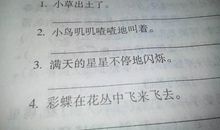 1. 小草出土了。
2. 小鸟叽叽喳喳地叫着。
3. 满天的星星不停地闪烁。
4. 彩蝶在花丛中飞来飞去。